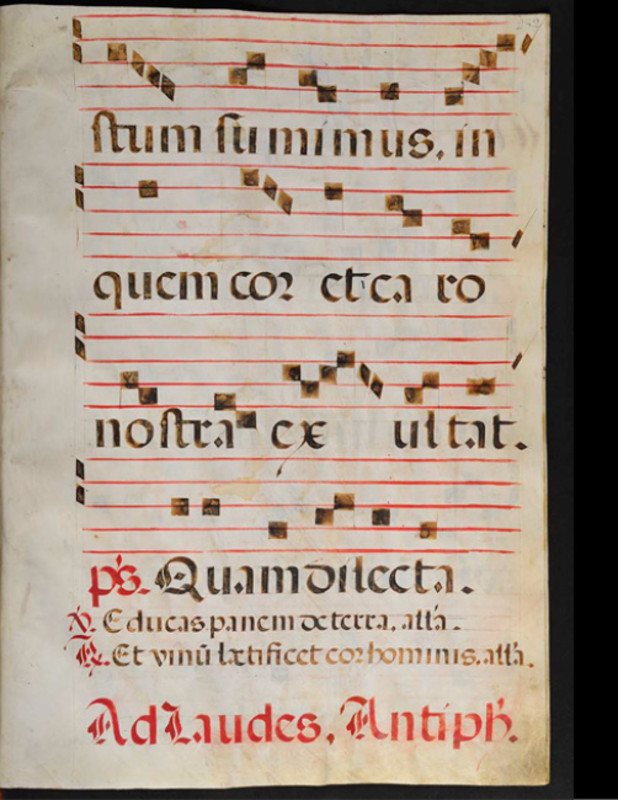 stum sumimus, in
quem cor et ca ro
nostra ex ultat.
ps. Quam dilecta.
℣. Educas panem de terra, alla.
℟. Et vinū lætificet cor hominis. alla.
Ad Laudes, Antiph.